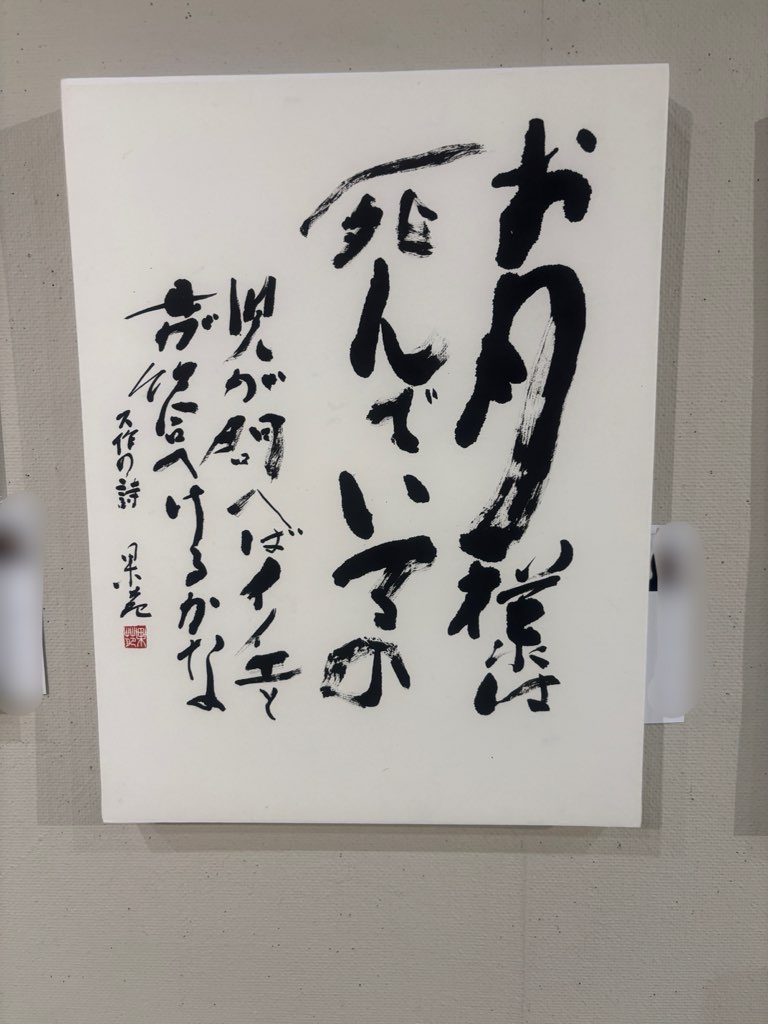 お月様は
死んでいるの
児が問へばイイエと
母が答へけるかな
久作の詩